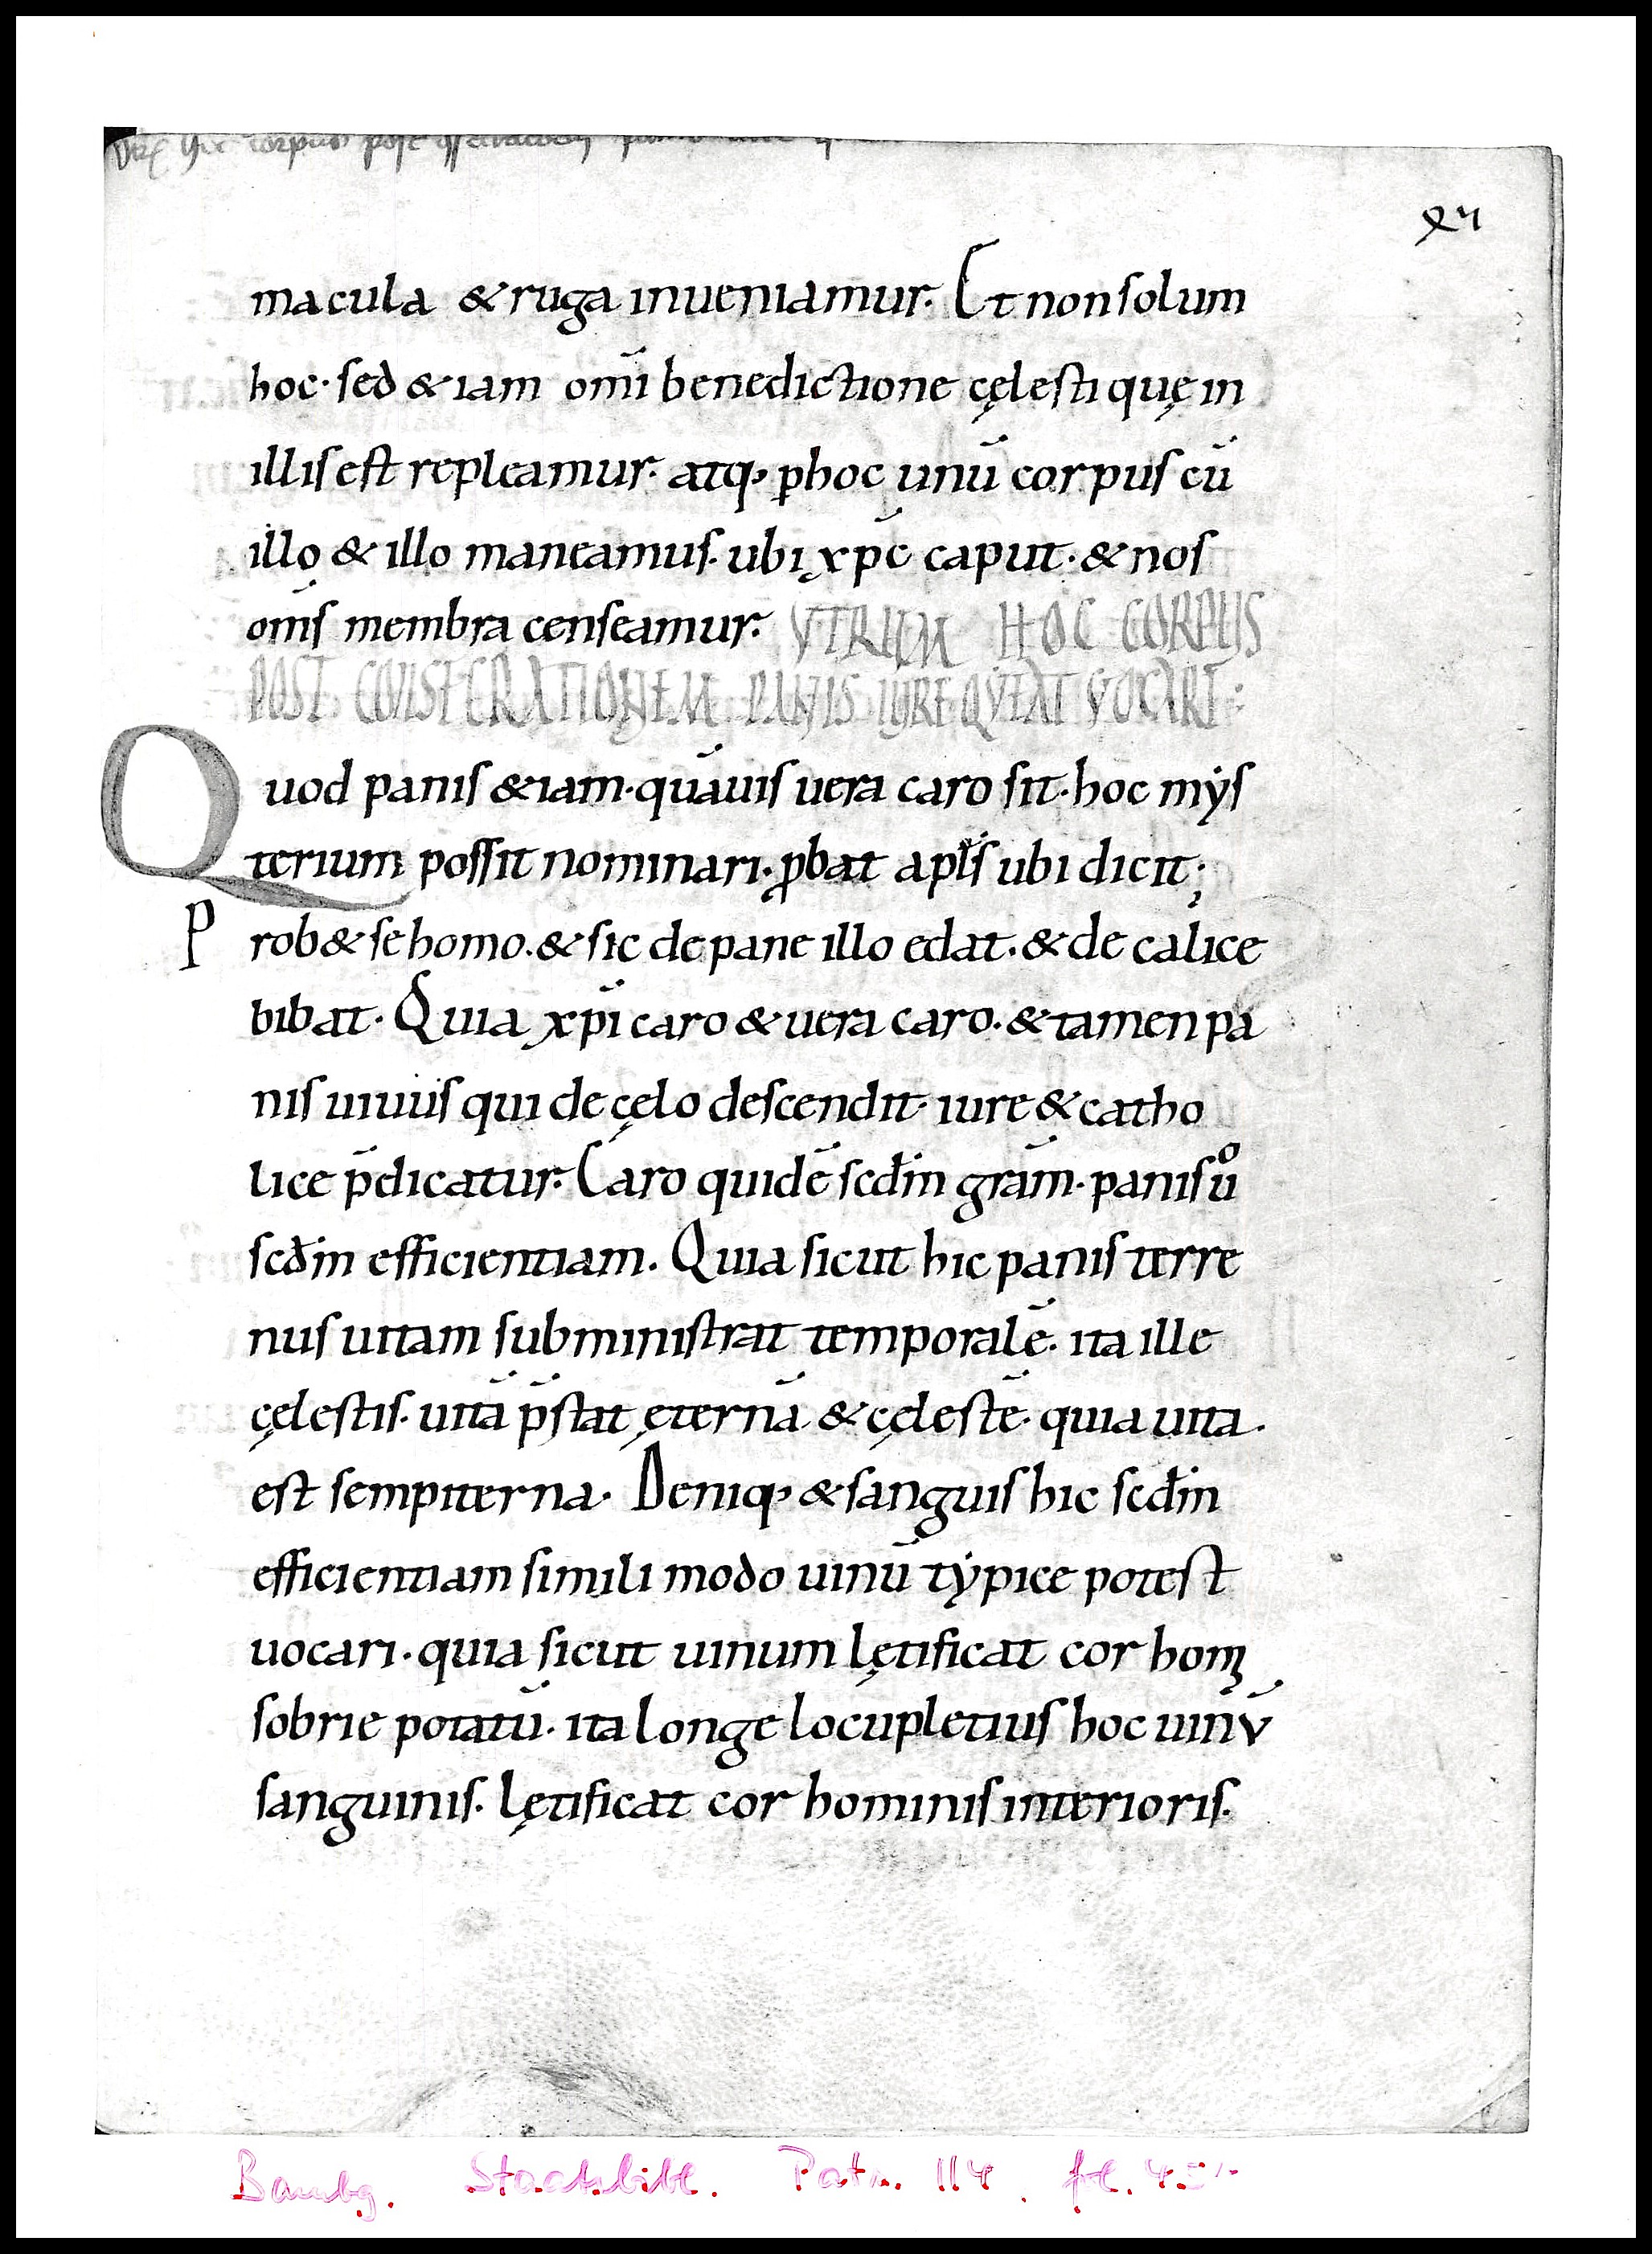 Utrum hoc corpus post
xlv
macula & ruga inueniamur. Et non solum
hoc· sed & iam om̄i benedictione cęlesti quę in
illis est repleamur· atq; ꝑ hoc unū corpus cū
illo & illo maneamus· ubi xp̄c caput· & nos
om̄s membra censeamur· VTRUM HOC CORPUS
POST CONSECRATIONEM PANIS IURE QVEAT VOCARI:
Quod panis & iam· quāuis uera caro sit· hoc mẏs
terium possit nominari· ꝓbat apl̄s ubi dicit;
Prob& se homo· & sic de pane illo edat· & de calice
bibat· Quia xp̄i caro & uera caro· & tamen pa
nis uiuus qui de cęlo descendit· iure & catho
lice p̄dicatur· Caro quidē scd̄m grām· panis uͦ
scd̄m efficientiam· Quia sicut hic panis terre
nus uitam subministrat temporalē· ita ille
cęlestis· uitā p̄stat ęternā & cęlestē· quia uita·
est sempiterna· Deniq; & sanguis hic scd̄m
efficientiam simili modo uinū tẏpice potest
uocari· quia sicut uinum lętificat cor homꝭ
sobrie potatū· ita longe locupletius hoc uinv̄
sanguinis· lętificat cor hominis interioris·
Bambg. Staatsbibl. Patr. 114.